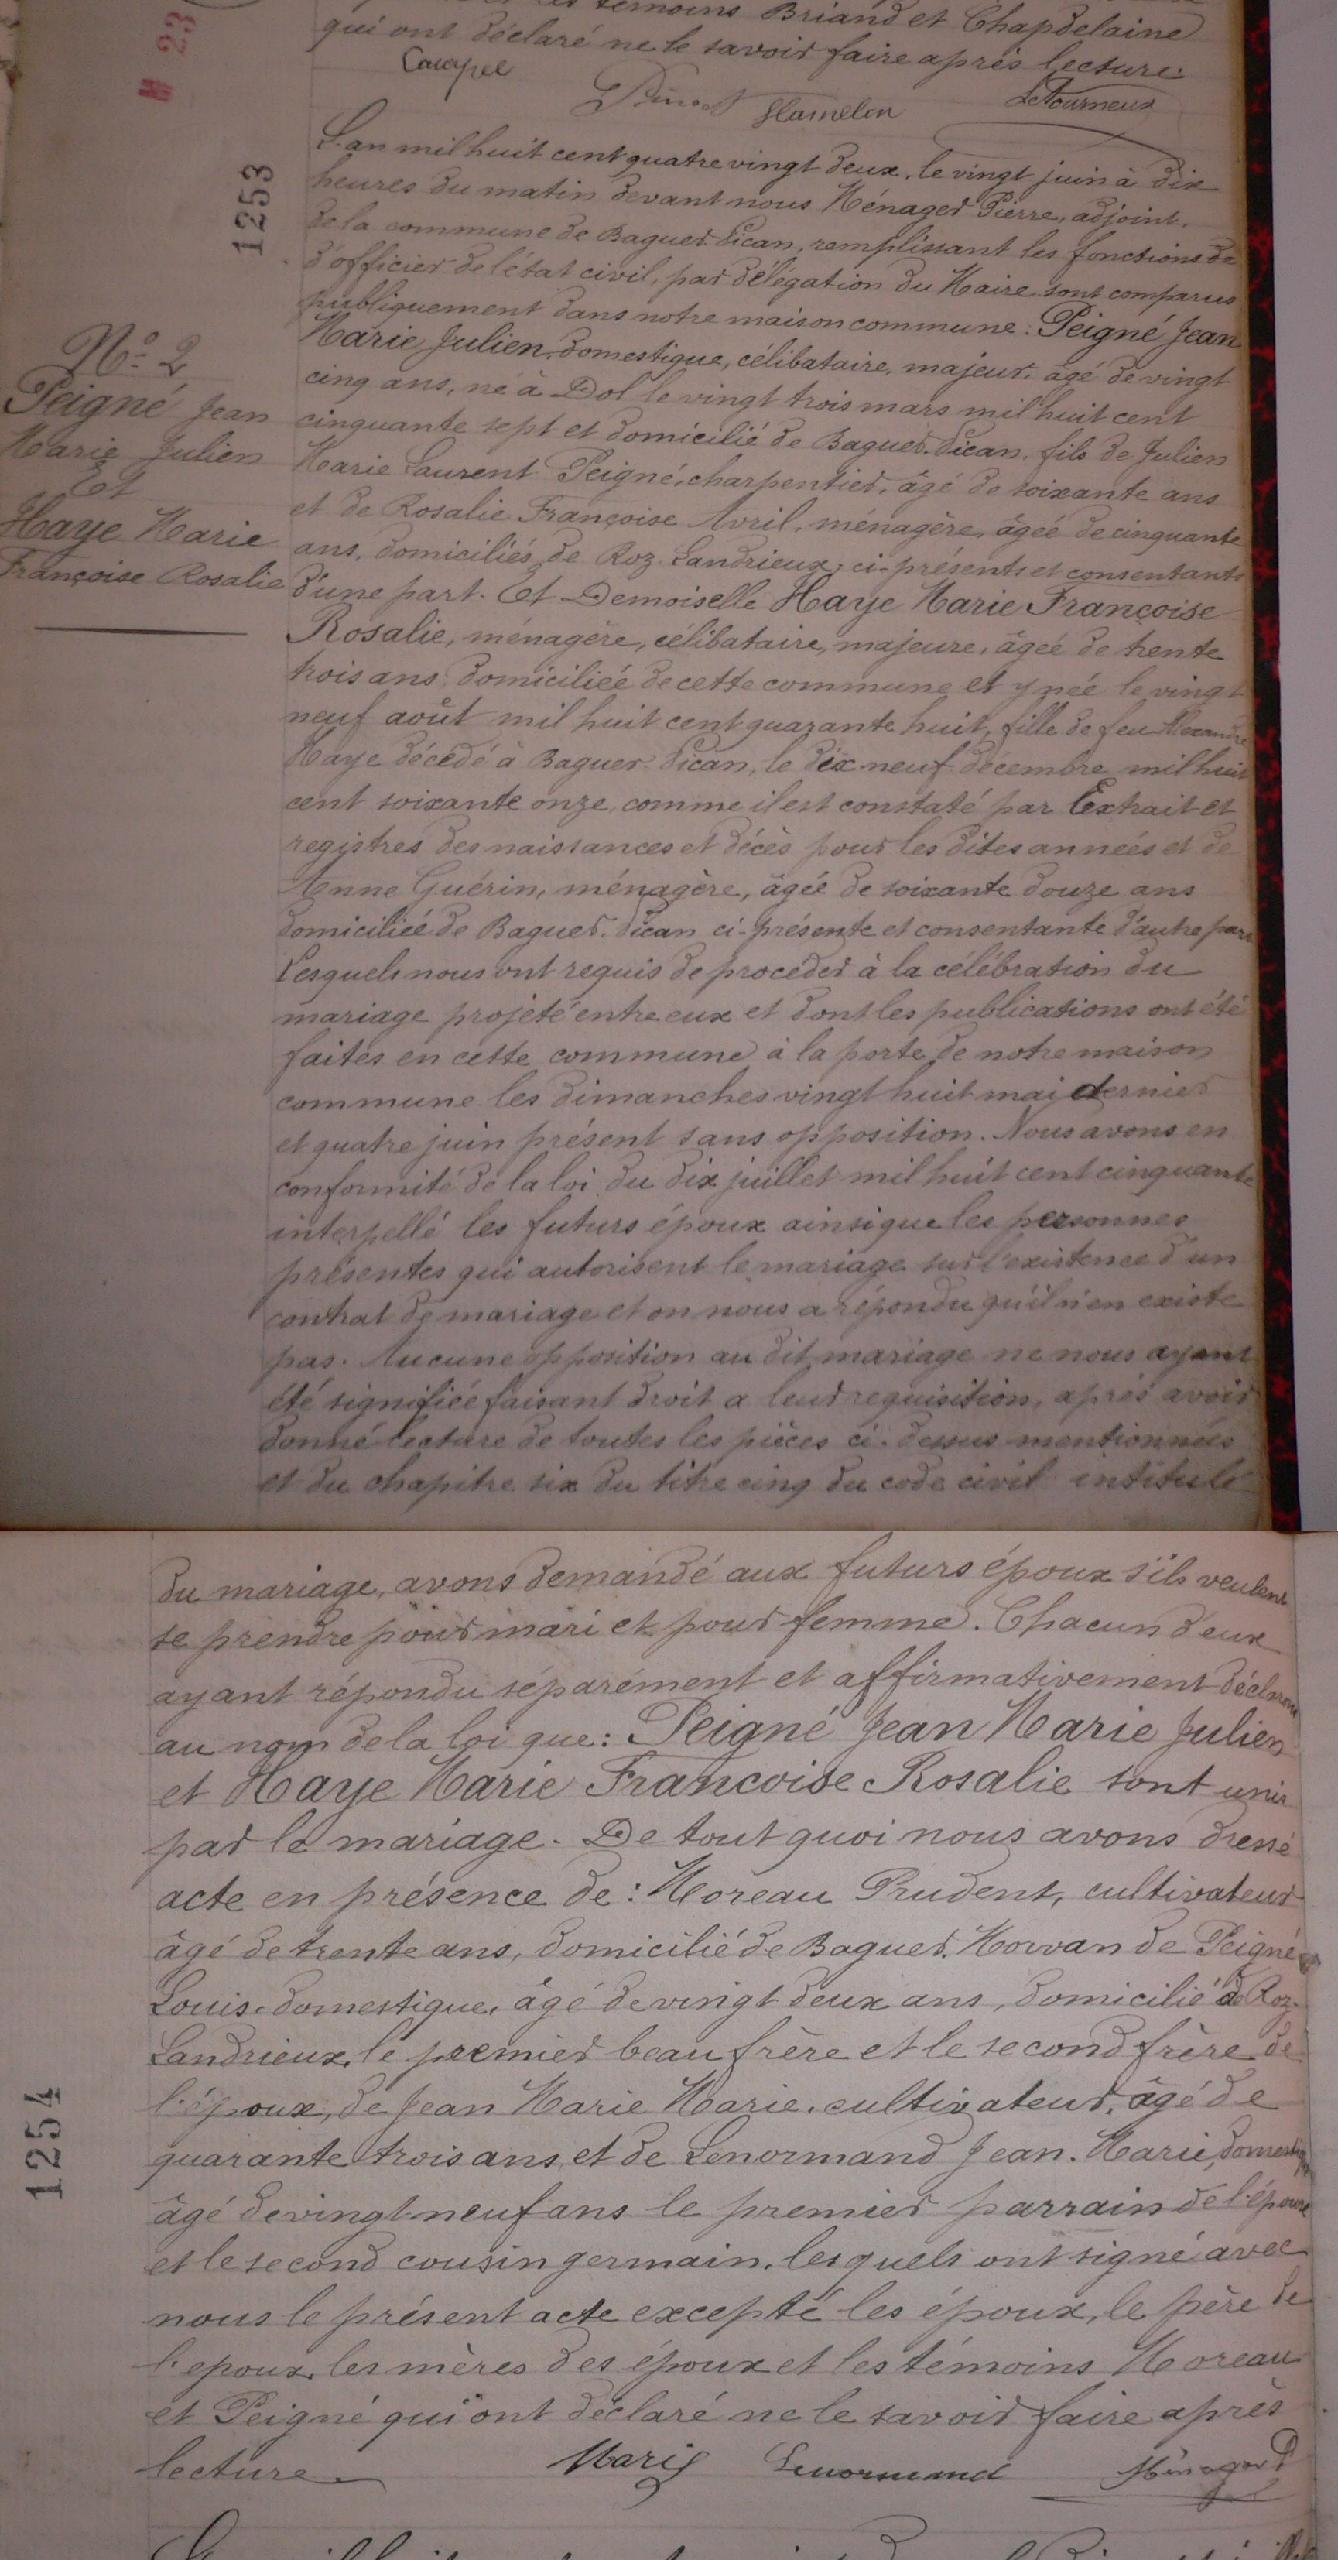 témoins Briand et Chapdelaine
qui ont déclaré ne le savoir faire après lecture.
Hamelon LeTourneux
N 23
1253
L'an mil huit cent quatre vingt deux, le vingt juin à dix
heures du matin devant nous Ménager Pierre, adjoint,
de la commune de Baguer Pican, remplissant les fonctions de
d'officier de l'état civil, par délégation du Maire sont comparus
publiquement dans notre maison commune : Peigné Jean
Marie Julien, domestique, célibataire, majeur, âgé de vingt
cinq ans, né à Dol le vingt trois mars mil huit cent
cinquante sept et domicilié de Baguer-Pican, fils de Julien
Marie Laurent Peigné, charpentier, âgé de soixante ans
et de Rosalie Françoise Avril, ménagère, âgée de cinquante
ans, domiciliés de Roz-Landrieux, ci-présents et consentants
d'une part. Et Demoiselle Haye Marie Françoise
Rosalie, ménagère, célibataire, majeure, âgée de trente
trois ans, domiciliée de cette commune et y née le vingt
neuf août mil huit cent quarante huit, fille de feu Alexandre
Haye décédé à Baguer-Pican, le dix neuf décembre mil huit
cent soixante onze, comme il est constaté par Extrait et
registres des naissances et décès pour les dites années et de
Anne Guérin, ménagère, âgée de soixante douze ans
domiciliée de Baguer-Pican ci-présente et consentante d'autre part
Lesquels nous ont requis de procéder à la célébration du
mariage projeté entre eux et dont les publications ont été
faites en cette commune à la porte de notre maison
commune les dimanches vingt huit mai dernier
et quatre juin présent sans opposition. Nous avons en
conformité de la loi du dix juillet mil huit cent cinquante
interpellé les futurs époux ainsi que les personnes
présentes qui autorisent le mariage sur l'existence d'un
contrat de mariage et on nous a répondu qu'il n'en existe
pas. Aucune opposition au dit mariage ne nous ayant
été signifiée faisant droit a leur requisition, après avoir
donné lecture de toutes les pièces ci-dessus mentionnées
et du chapitre six du titre cinq du code civil intitulé
N° 2
Peigné Jean
Marie Julien
Et
Haye Marie
Françoise Rosalie
du mariage, avons demandé aux futurs époux s'ils veulent
se prendre pour mari et pour femme. Chacun d'eux
ayant répondu séparément et affirmativement déclarons
au nom de la loi que : Peigné Jean Marie Julien
et Haye Marie Francoise Rosalie sont unis
par le mariage. De tout quoi nous avons dressé
acte en présence de : Moreau Prudent, cultivateur
âgé de trente ans, domicilié de Baguer-Morvan de Peigné
Louis, domestique, âgé de vingt deux ans, domicilié de Roz-
Landrieux, le premier beau frère et le second frère de
l'époux, de Jean Marie Marie, cultivateur, âgé de
quarante trois ans, et de Lenormand Jean-Marie, domestique
âgé de vingt-neuf ans le premier parrain de l'épouse
et le second cousin germain, lesquels ont signé avec
nous le présent acte excepté les époux, le père de
l'epoux, les mères des époux et les témoins Moreau
et Peigné qui ont déclaré ne le savoir faire après
lecture
Marie Lenormand Ménager P
1254